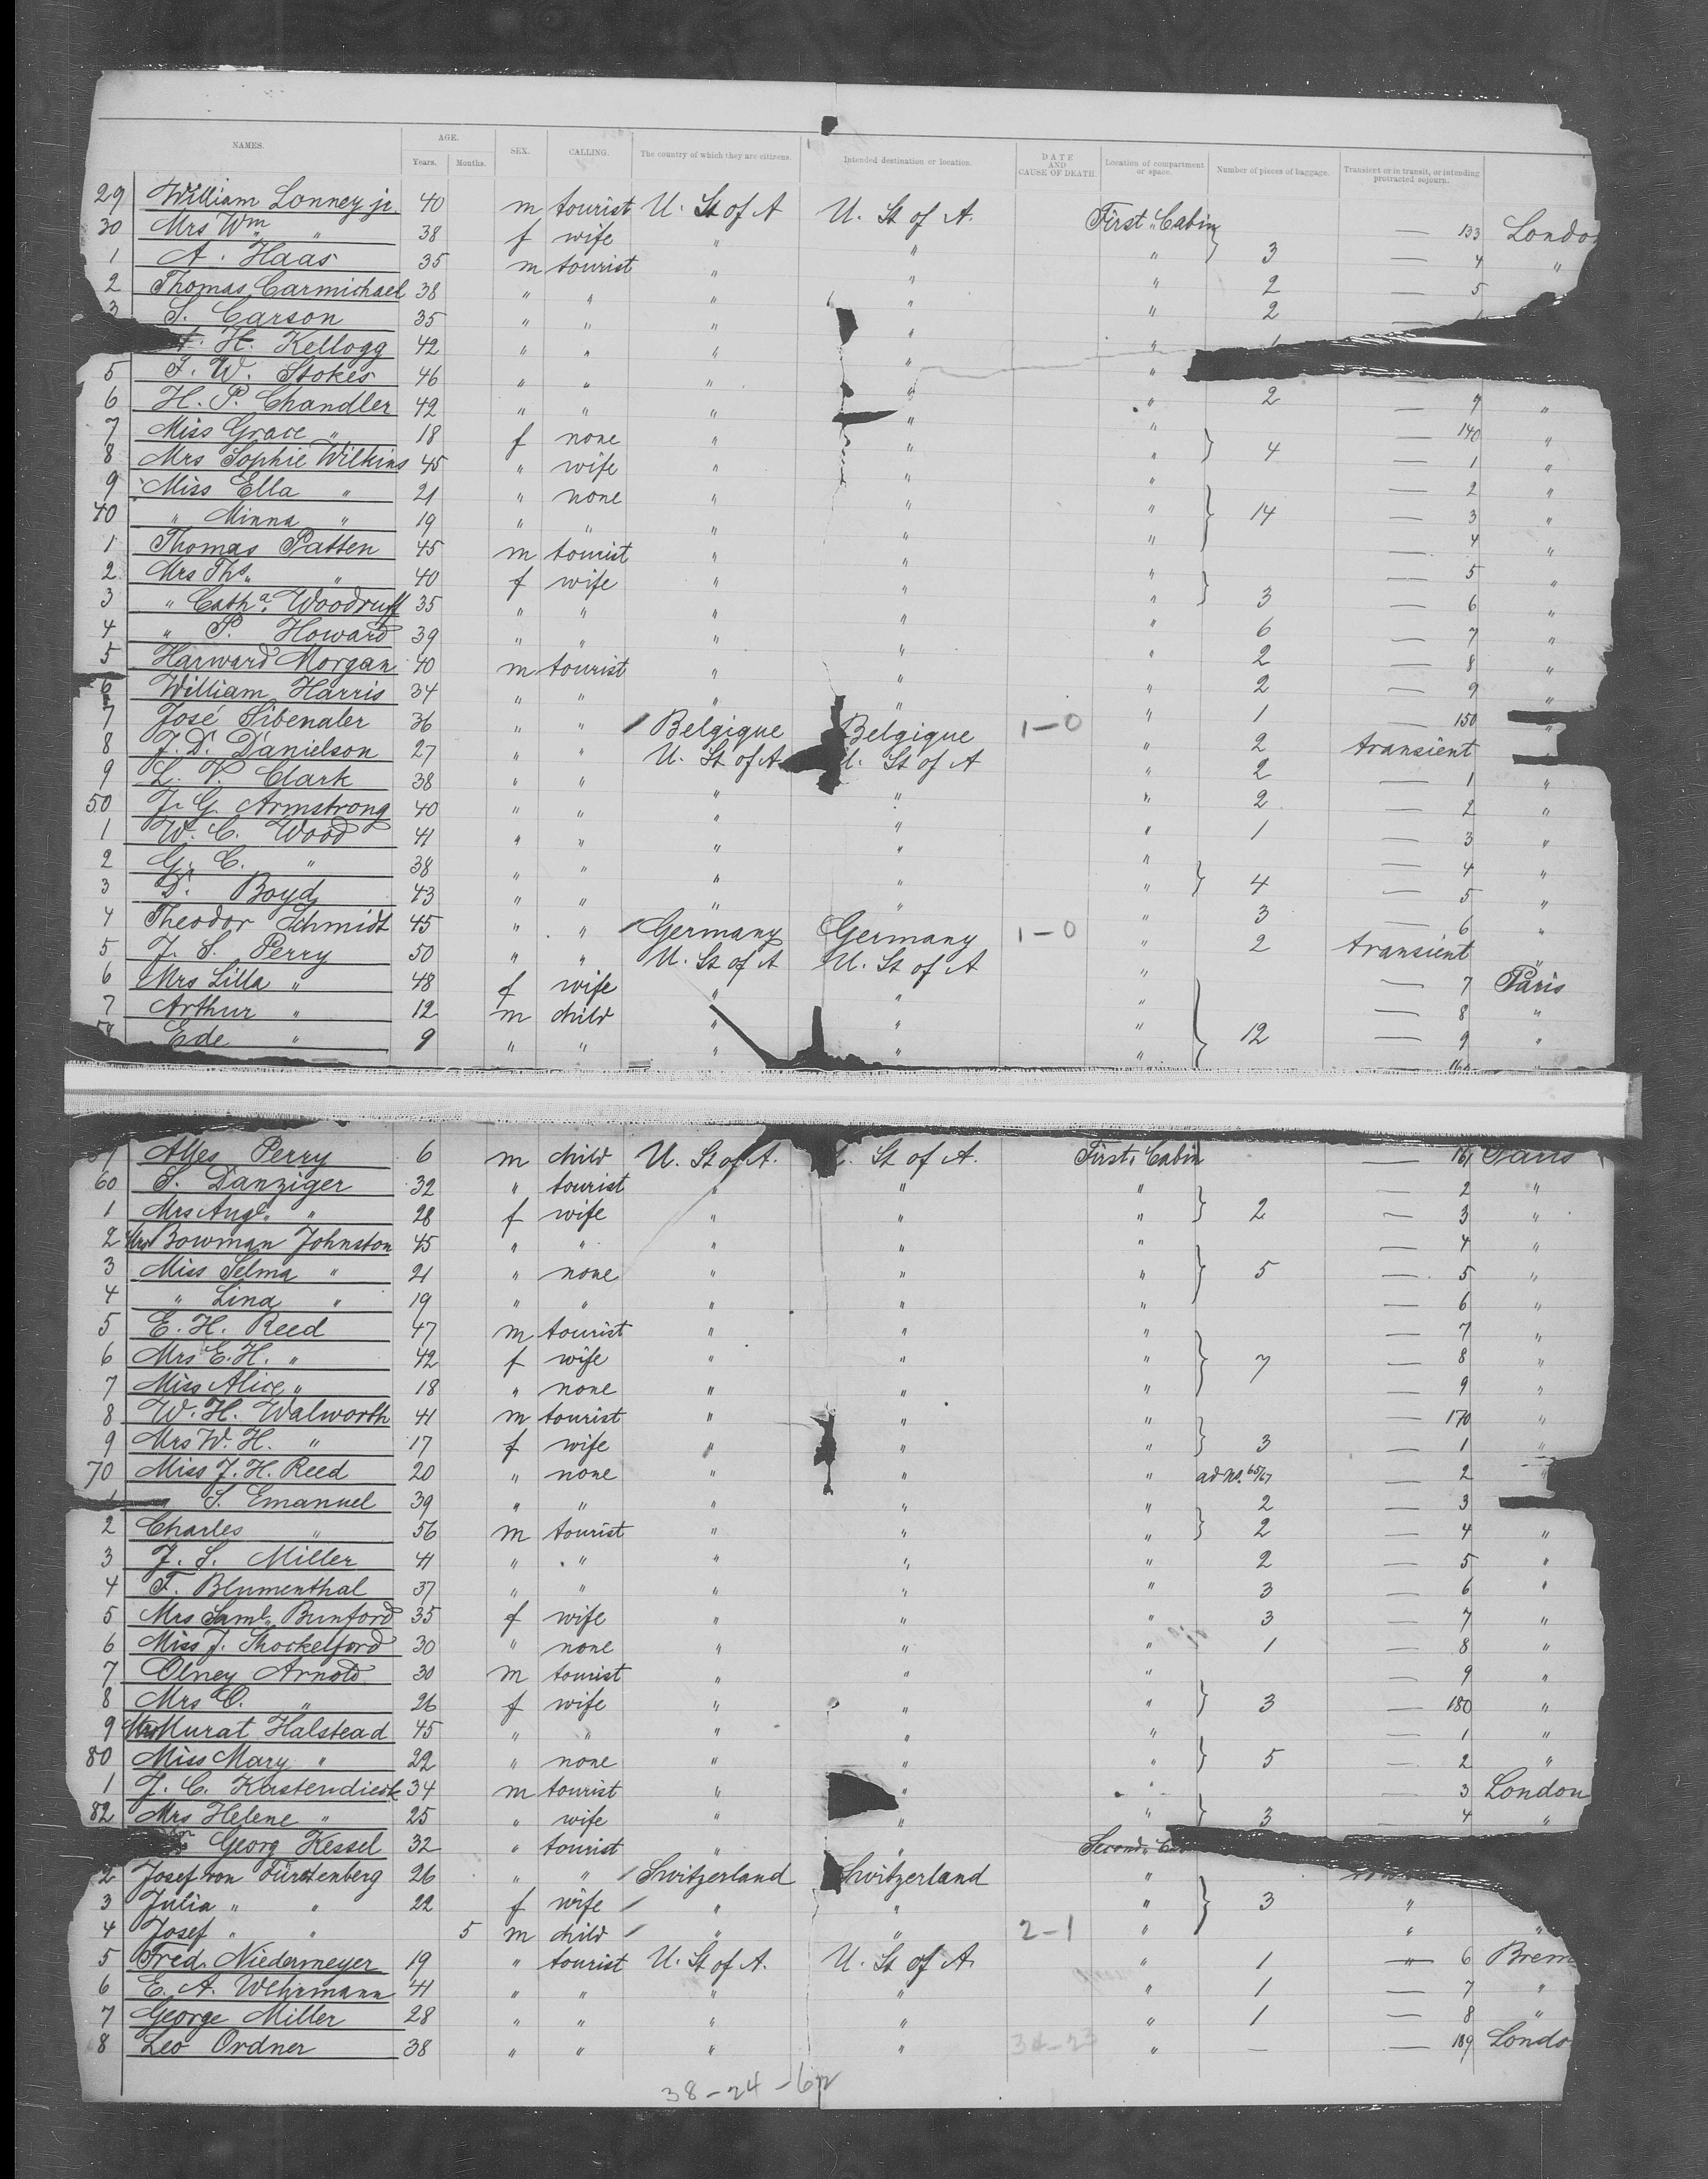 NAMES. AGE. Years. Months. SEX. CALLING. The country of which they are citizens. Intended destination or location. DATE AND CAUSE OF DEATH. Location of compartment or space. Number of pieces of baggage. Transient or in transit, or intending protracted sojourn.
29 William Lonney jr. 40 m tourist U. St of A U. St of A. First Cabin — 133 London
30 Mrs Wm " 38 f wife " " " 3 — 4 "
1 A. Haas 35 m tourist " " " 2 — 5
2 Thomas Carmichael 38 " " " " " 2
3 S. Carson 35 " " " " "
H. Kellogg 42 " " " " "
5 F. W. Stokes 46 " " " " " 2 — 9 "
6 H. P. Chandler 42 " " " " " — 140 "
7 Miss Grace " 18 f none " " " 4 — 1 "
8 Mrs Sophie Wilkins 45 " wife " " " — 2 "
9 Miss Ella " 21 " none " " " 14 — 3 "
40 " Minna " 19 " " " " " — 4 "
1 Thomas Patten 45 m tourist " " " — 5 "
2 Mrs Ths. " 40 f wife " " " 3 — 6 "
3 " Catha. Woodruff 35 " " " " " 6 — 7 "
4 " P. Howard 39 " " " " " 2 — 8 "
5 Harward Morgan 40 m tourist " " " 2 — 9 "
6 William Harris 34 " " " " " 1 — 150 "
7 José Sibenaler 36 " " Belgique Belgique 1-0 " 2 transient
8 J. D. Danielson 27 " " U. St of A U. St of A " 2 — 1 "
9 L. V. Clark 38 " " " " " 2 — 2 "
50 J. G. Armstrong 40 " " " " " 1 — 3 "
1 W. C. Wood 41 " " " " " — 4 "
2 G. C. " 38 " " " " " 4 — 5 "
3 Dr. Boyd 43 " " " " " 3 — 6 "
4 Theodor Schmidt 45 " " Germany Germany 1-0 " 2 transient "
5 J. S. Perry 50 " " U. St of A U. St of A " — 7 Paris
6 Mrs Lilla " 48 f wife " " " — 8 "
7 Arthur " 12 m child " " " 12 — 9 "
58 Ede " 9 " " " " " — 160 "
Alles Perry 6 m child U. St of A. St of A. First Cabin — 161 Paris
60 S. Danziger 32 " tourist " " " — 2 "
1 Mrs Augl. " 28 f wife " " " 2 — 3 "
2 Mrs Bowman Johnston 45 " " " " " — 4 "
3 Miss Selma " 21 " none " " " 5 — 5 "
4 " Lina " 19 " " " " " — 6 "
5 E. H. Reed 47 m tourist " " " — 7 "
6 Mrs E. H. " 42 f wife " " " 7 — 8 "
7 Miss Alice " 18 " none " " " — 9 "
8 W. H. Walworth 41 m tourist " " " — 170 "
9 Mrs W. H. " 17 f wife " " " 3 — 1 "
70 Miss J. H. Reed 20 " none " " " ad No. 65/67 — 2 "
S. Emanuel 39 " " " " " 2 — 3
2 Charles " 56 m tourist " " " 2 — 4 "
3 J. S. Miller 41 " " " " " 2 — 5 "
4 F. Blumenthal 37 " " " " " 3 — 6 "
5 Mrs Saml. Bunford 35 f wife " " " 3 — 7 "
6 Miss J. Shockelford 30 " none " " " 1 — 8 "
7 Olney Arnold 30 m tourist " " " — 9 "
8 Mrs O. " 26 f wife " " " 3 — 180 "
9 Mrs Murat Halstead 45 " " " " " — 1 "
80 Miss Mary " 22 " none " " " 5 — 2 "
1 J. C. Kastendieck 34 m tourist " " " — 3 London
82 Mrs Helene " 25 " wife " " " 3 — 4 "
Georg Kessel 32 " tourist " " Second
2 Josef von Fürstenberg 26 " " Switzerland Switzerland "
3 Julia " " 22 f wife " " " 3 "
4 Josef " " 5 m child " " 2-1 " " "
5 Fred. Niedermeyer 19 " tourist U. St of A. U. St of A. " 1 — 6 Brem
6 E. A. Wehrmann 41 " " " " " 1 — 7 "
7 George Miller 28 " " " " " 1 — 8 "
8 Leo Ordner 38 " " " " 34-23 " — — 189 Londo
38-24-62